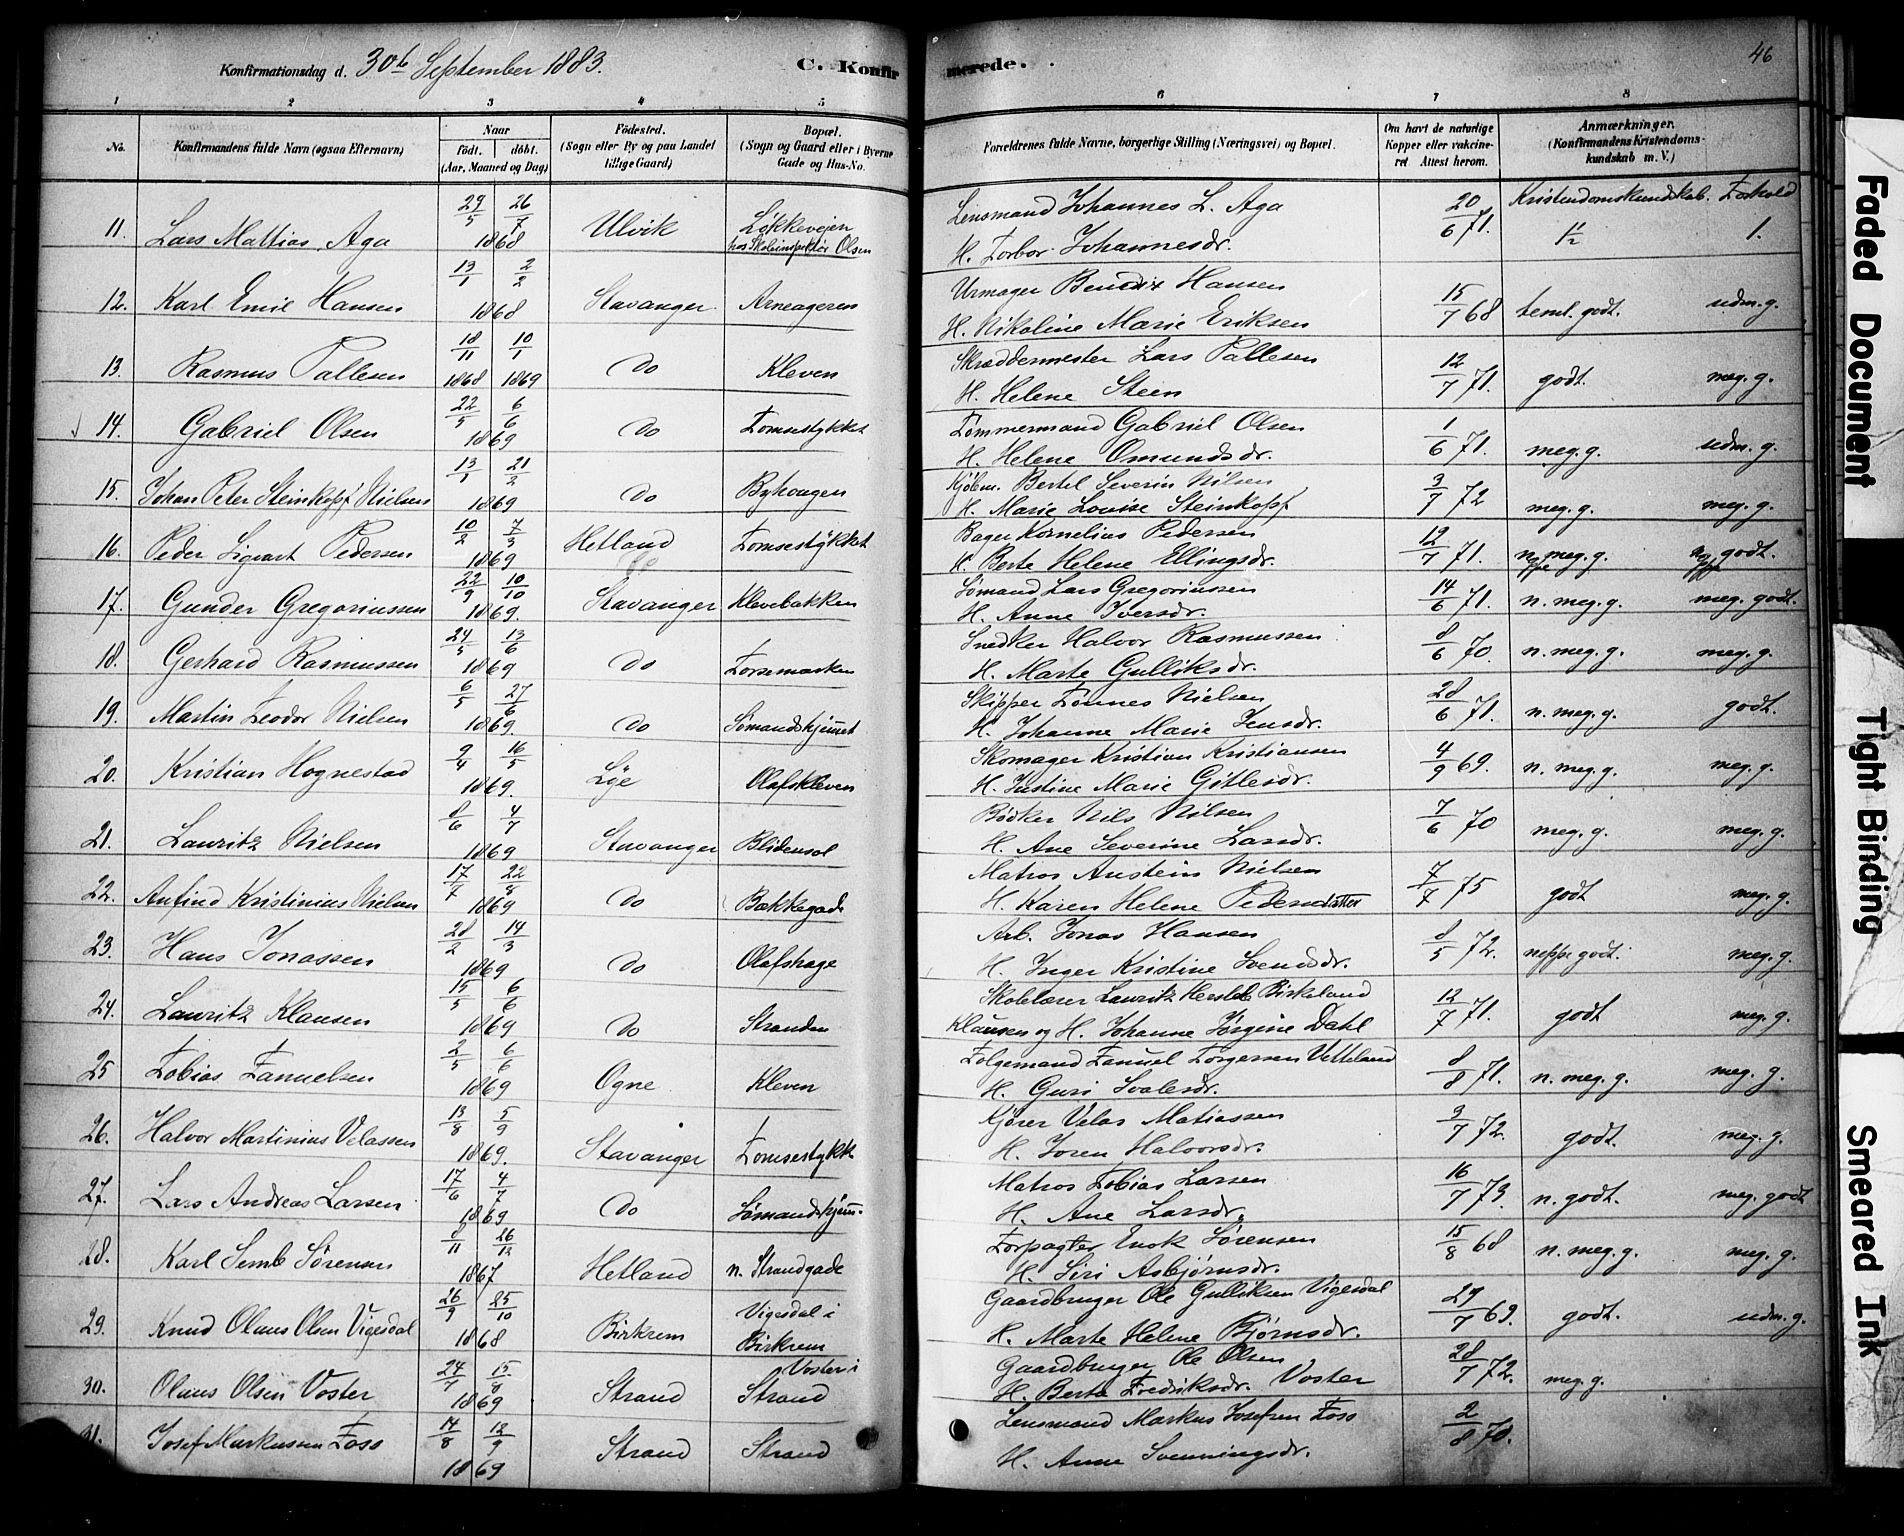 Konfirmationsdag d. 30te September 1883. C. Konfirmerede. 46
1 2 3 4 5 6 7 8
No. Konfirmandens fulde Navn (ogsaa Efternavn) Naar Födt. döbt. (Aar, Maaned og Dag) Födested. (Sogn eller By og paa Landet tillige Gaard) Bopæl. (Sogn og Gaard eller i Byerne Gade og Hus-No. Forældrenes fulde Navne, borgerlige Stilling (Næringsvei) og Bopæl. Om havt de naturlige Kopper eller vakcineret Attest herom. Anmærkninger. (Konfirmandens Kristendomskundskab m. V.)
Kristendomskundskab. Forhold
11. Lars Mattias Aga 29/5 26/7 1868 Ulvik Løkkeveien hos Skoleinspektör Olsen Lensmand Johannes L. Aga H. Torbor Johannesdr. 20/6 71. 1½ 1.
12. Karl Emil Hansen 13/1 2/2 1868 Stavanger Arneageren Urmager Bendix Hansen H. Nikoline Marie Eriksen 15/7 68 teml. godt. udm. g.
13. Rasmus Pallesen 18/11 1868 10/1 1869 Do Kleven Skræddermester Lars Pallesen H. Helene Steen 12/7 71. godt. meg. g.
14. Gabriel Olsen 22/5 6/6 1869 Do Tomsestykket Tømmermand Gabriel Olsen H. Helene Omundsdr. 1/6 71. meg. g. udm. g.
15. Johan Peter Steinkopf Nielsen 13/1 21/2 1869 Do Byhougen Kjøbm. Bertel Severin Nilsen H. Marie Lovise Steinkopf 3/7 72 meg. g. meg. g.
16. Peder Sigvart Pedersen 10/2 7/3 1869 Hetland Tomsestykket Bager Kornelius Pedersen H. Berte Helene Ellingsdr. 12/7 71. n. meg. g. godt.
17. Gunder Gregoriussen 22/9 10/10 1869. Stavanger Klevebakken Sømand Lars Gregoriussen H. Anne Iversdr. 14/6 71. n. meg. g. meg. godt.
18. Gerhard Rasmussen 24/5 13/6 1869 Do Torsmarken Snedker Halvor Rasmussen H. Marte Gulliksdr. 8/6 70. n. meg. g. meg. g.
19. Martin Teodor Nielsen 6/5 27/6 1869. Do Sømandshjemmet Skipper Tönnes Nielsen H. Johanne Marie Jensdr. 28/6 71. n. meg. g. godt.
20. Kristian Hognestad 9/4 16/5 1869. Lye Olafskleven Skomager Kristian Kristiansen H. Justine Marie Gitlesdr. 4/9 69. n. meg. g. meg. g.
21. Lauritz Nielsen 8/6 4/7 1869 Stavanger Blidensol Bödker Nils Nilsen H. Ane Severine Larsdr. 7/6 70 meg. g. meg. g.
22. Anfind Kristinius Nielsen 17/7 22/8 1869 Do Bakkegade Matros Anstein Nielsen H. Karen Helene Pedersdatter 7/7 75 godt meg. g.
23. Hans Jonassen 28/2 14/3 1869 Do Olafshage Arb. Jonas Hansen H. Inger Kristine Svendsdr. 8/5 72. neppe godt. meg. g.
24. Lauritz Klausen 15/5 6/6 1869 Do Stranden Skolelærer Lauritz Hersleb Birkeland Klausen og H. Johanne Jörgine Dahl 12/7 71. godt meg. g.
25 Tobias Fanuelsen 2/5 6/6 1869 Ogne Kleven Følgemand Fanuel Torgersen Vetteland H. Guri Svalesdr. 8/8 71. n. meg. g. meg. g.
26. Halvor Martinius Velassen 13/8 5/9 1869. Stavanger Tomsestykk. Kjører Velas Matiassen H. Joren Halvorsdr. 3/7 72. godt. meg. g.
27. Lars Andreas Larsen 17/6 4/7 1869 Do Sømandshjem. Matros Tobias Larsen H. Ane Larsdr. 16/7 73. n. godt. meg. godt
28. Karl Semb Sörensen 8/11 26/12 1867 Hetland n. Strandgade Forpagter Enok Sørensen H. Siri Asbjørnsdr. 15/8 68 n. meg. g. meg. g.
29. Knud Olaus Olsen Vigesdal 26/9 25/10 1868 Birkrem Vigesdal i Birkrem Gaardbruger Ole Gulliksen Vigesdal H. Marte Helene Bjørnsdr. 29/7 69. godt. udm. g.
30. Olaus Olsen Voster 24/7 15/8 1869 Strand Voster i Strand Gaardbruger Ole Olsen H. Berte Fredriksdr. Voster 28/7 72. meg. g.
31. Josef Markussen Foss 14/8 12/9 1869 Strand Strand Lensmand Markus Josefsen Foss H. Anne Svenningsdr. 2/8 70.
Faded Document
Tight Binding
Smeared Ink